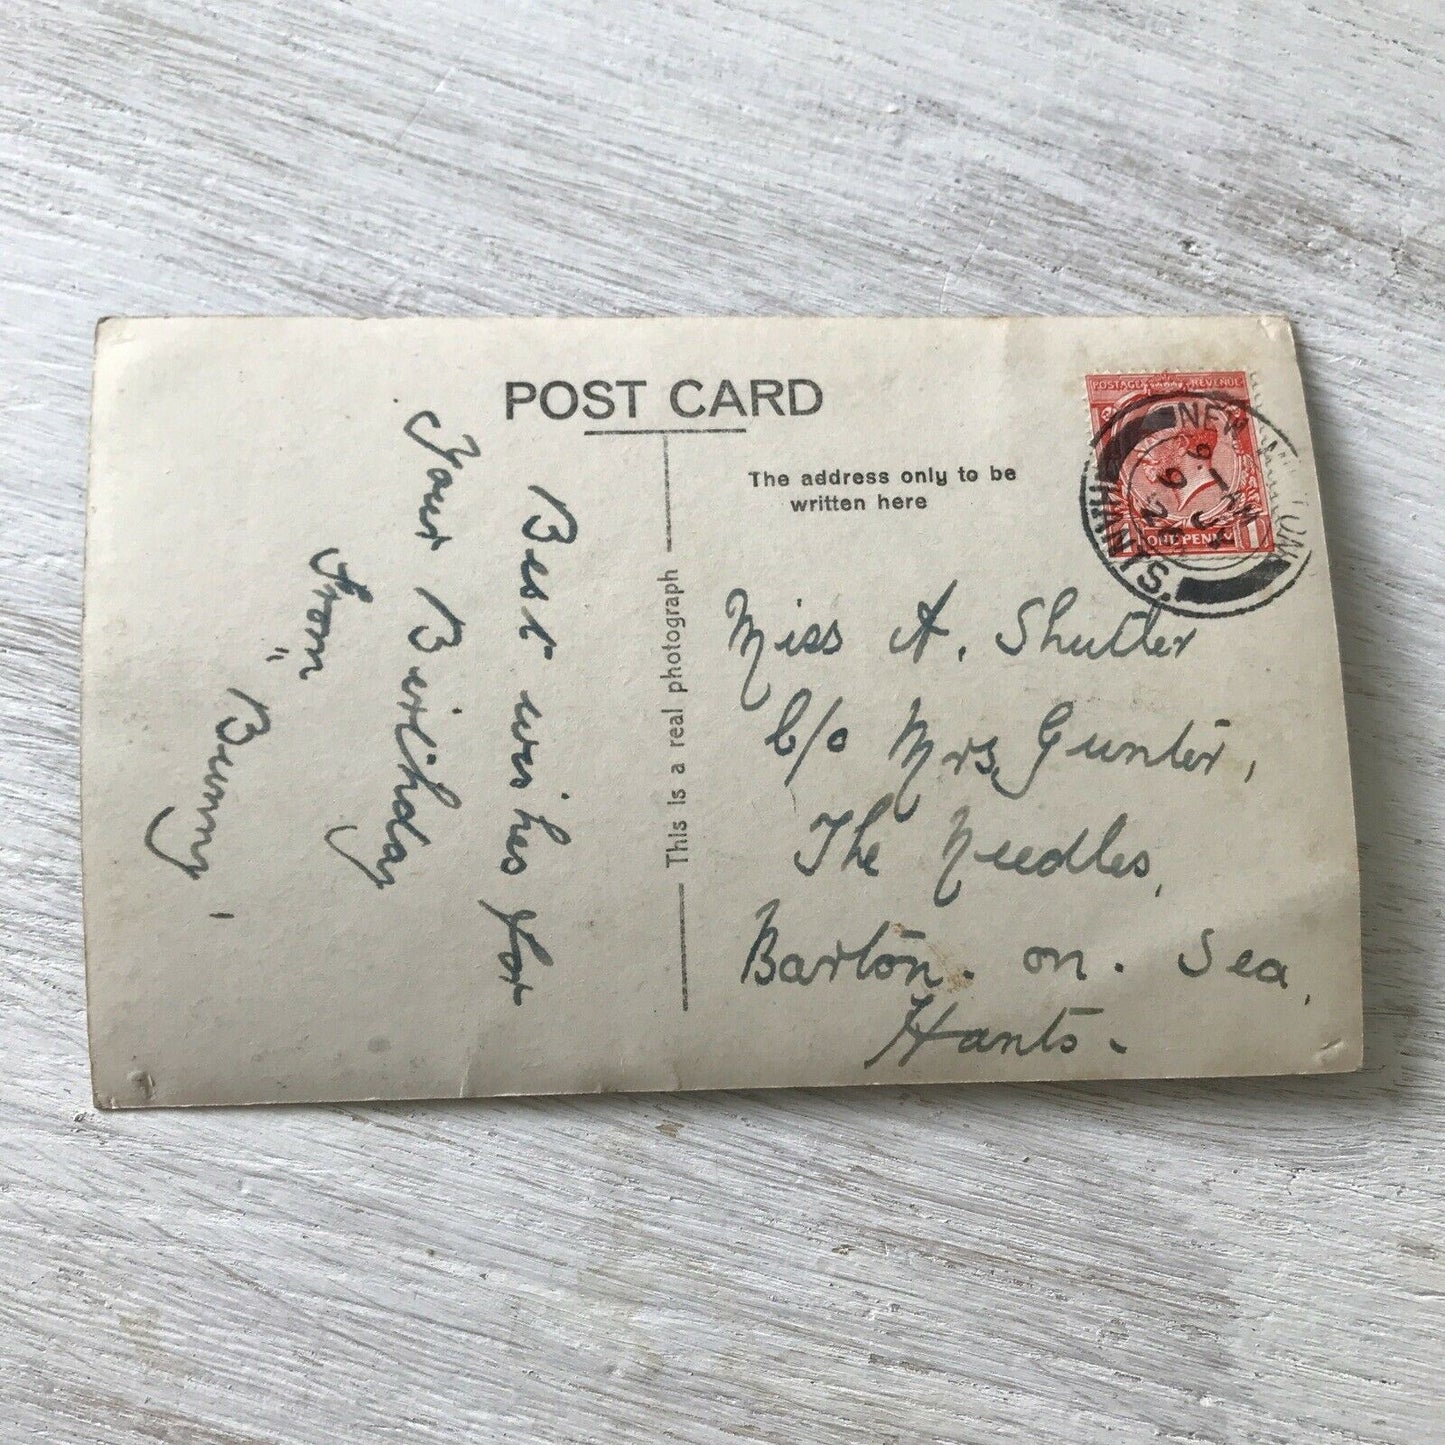 POST CARD
The address only to be
written here
This is a real photograph
POSTAGE REVENUE
1 ONE PENNY 1
NEW MILTON
HANTS.
9 - AM
9 JA
26
Best wishes for
Your Birthday
from
" Bunny
Miss A. Shutler
C/o Mrs Gunter,
The Needles,
Barton. on. Sea,
Hants.